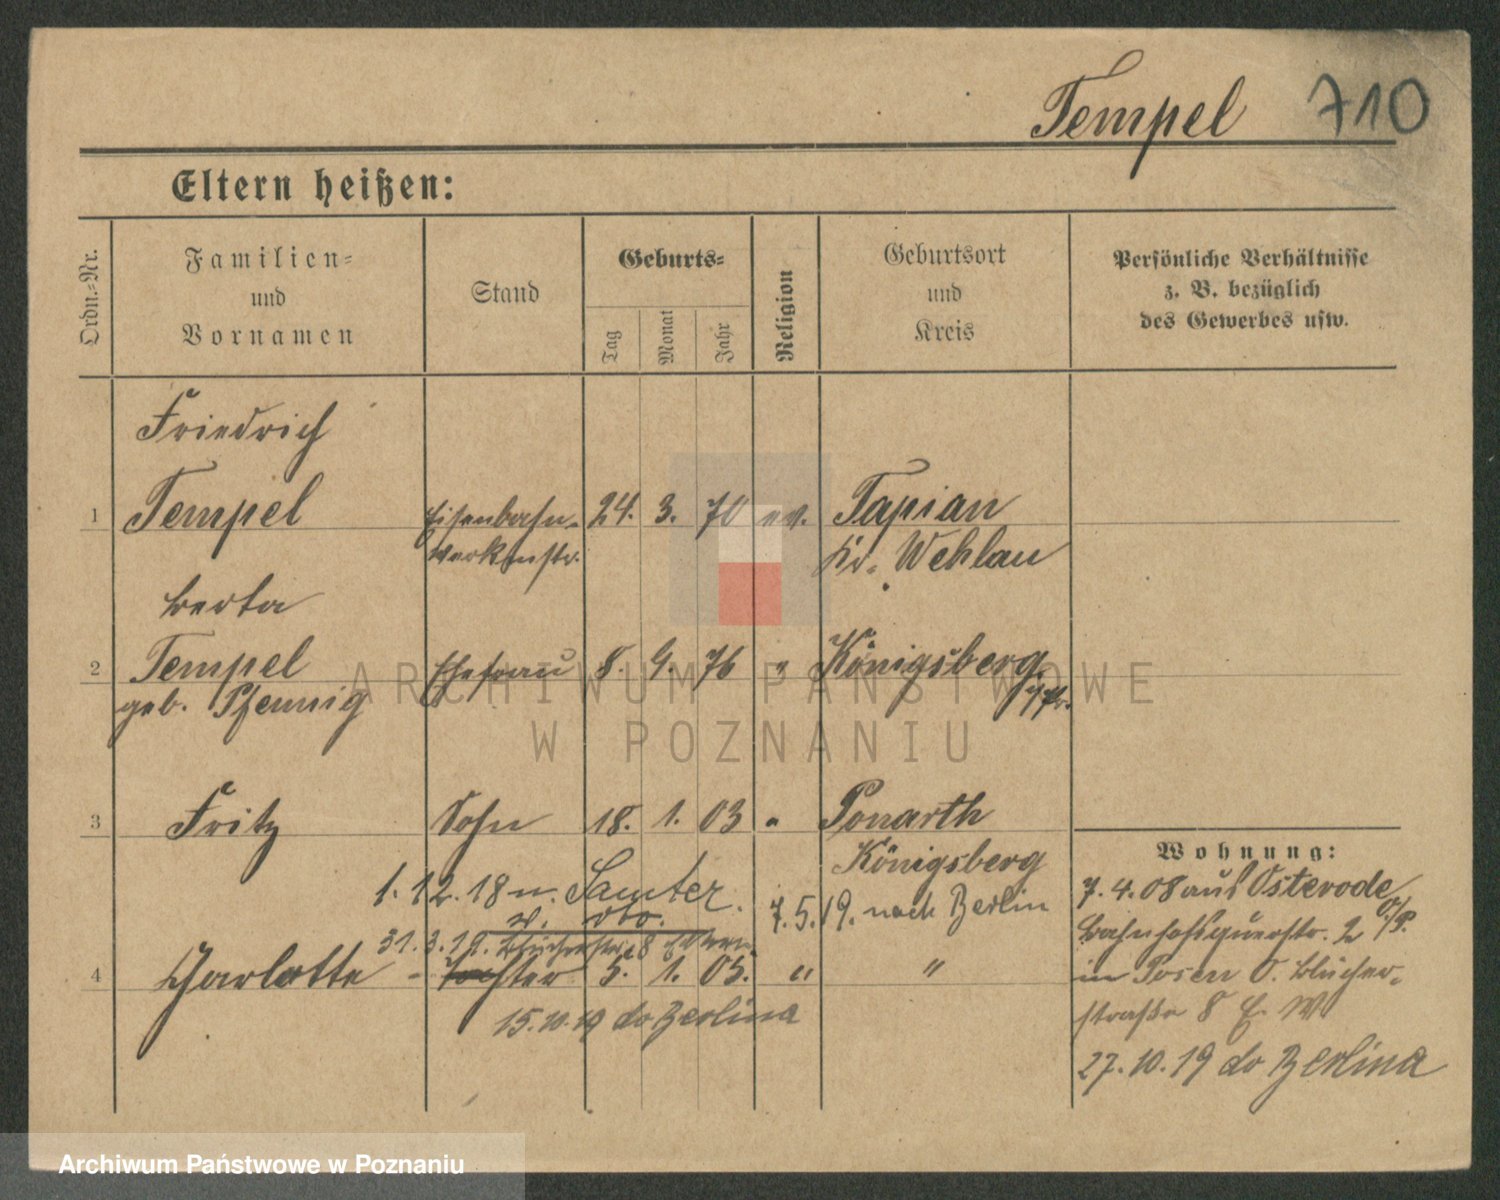 Tempel 710
Eltern heißen:
Ordn.-Nr.
Familien-
und
Vornamen
Stand
Geburts-
Tag
Monat
Jahr
Religion
Geburtsort
und
Kreis
Persönliche Verhältnisse
z. B. bezüglich
des Gewerbes usw.
Friedrich
1 Tempel Eisenbahn- 24. 3. 70 ev. Tapian
Kr. Wehlau
Berta
2 Tempel Ehefrau 8. 9. 76 " Königsberg
geb. Pfennig
3 Fritz Sohn 18. 1. 03 " Ponarth
Königsberg
1. 12. 18 n. Samter.
7.5.19. nach Berlin
31. 3. 19.
4 Charlotte - Tochter 5. 1. 05. " "
15.10.19 do Berlina
Wohnung:
7. 4. 08 aus Osterode
O/P.
Bahnhofsquerstr. 2
in Posen O. Blücher-
straße 8 E. W
27. 10. 19 do Berlina
ARCHIWUM PAŃSTWOWE
W POZNANIU
Archiwum Państwowe w Poznaniu